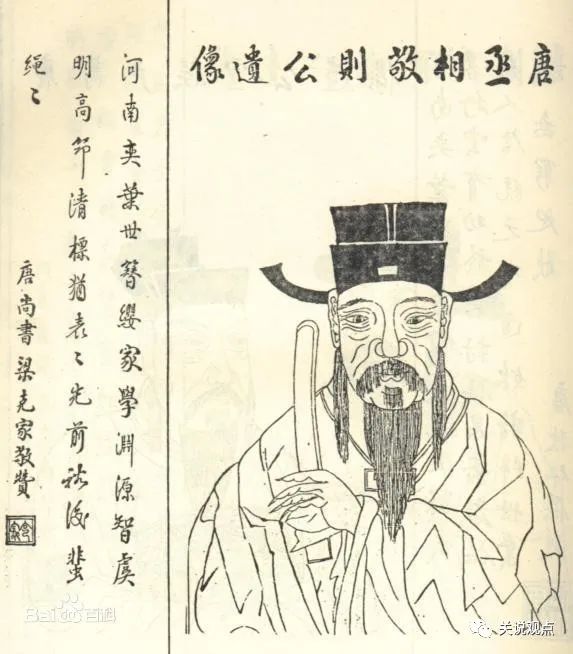 唐丞相敬則公遺像
河南奕葉世簪纓家學淵源智虞
明高節清標猶表〻光前裕後蜚
繩〻
唐尚書梁克家敬贊
Bai百科
关说观点